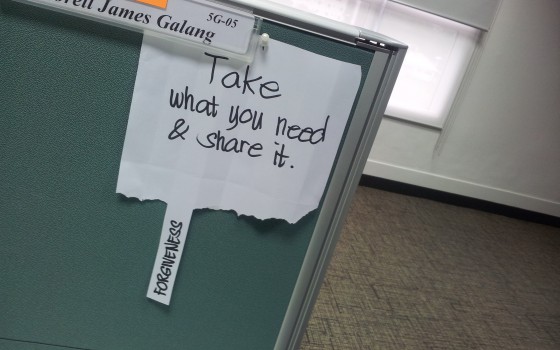 James Galang
5G-05
Take
what you need
& share it.
FORGIVENESS